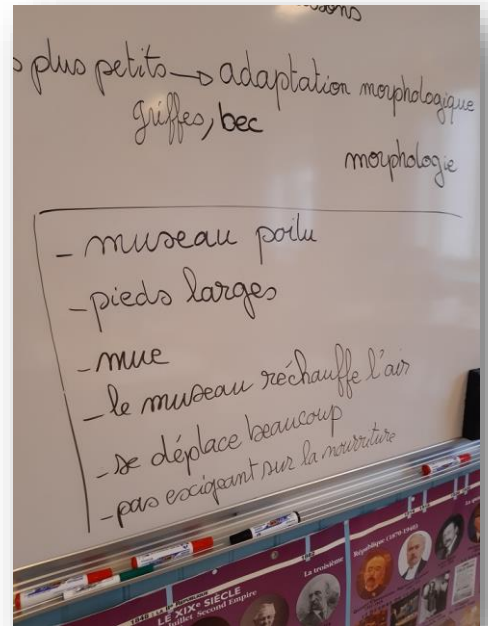 sons
s plus petits → adaptation morphologique
griffes, bec
morphologie
- museau poilu
- pieds larges
- mue
- le museau réchauffe l'air
- se déplace beaucoup
- pas exigeant sur la nourriture
LE XIXe SIÈCLE
Juillet, Second Empire
La troisième
République (1870-1940)